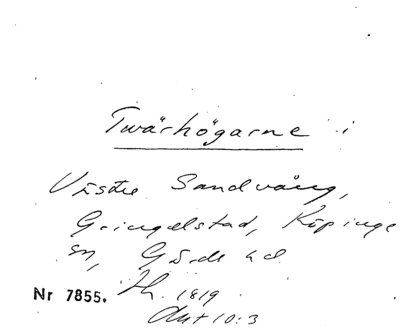 Twärhögarne i
Västra Sandvång,
Gringelstad, Köpinge
sn, Gärds hd
Nr 7855. Jh. 1819
Akt 10:3